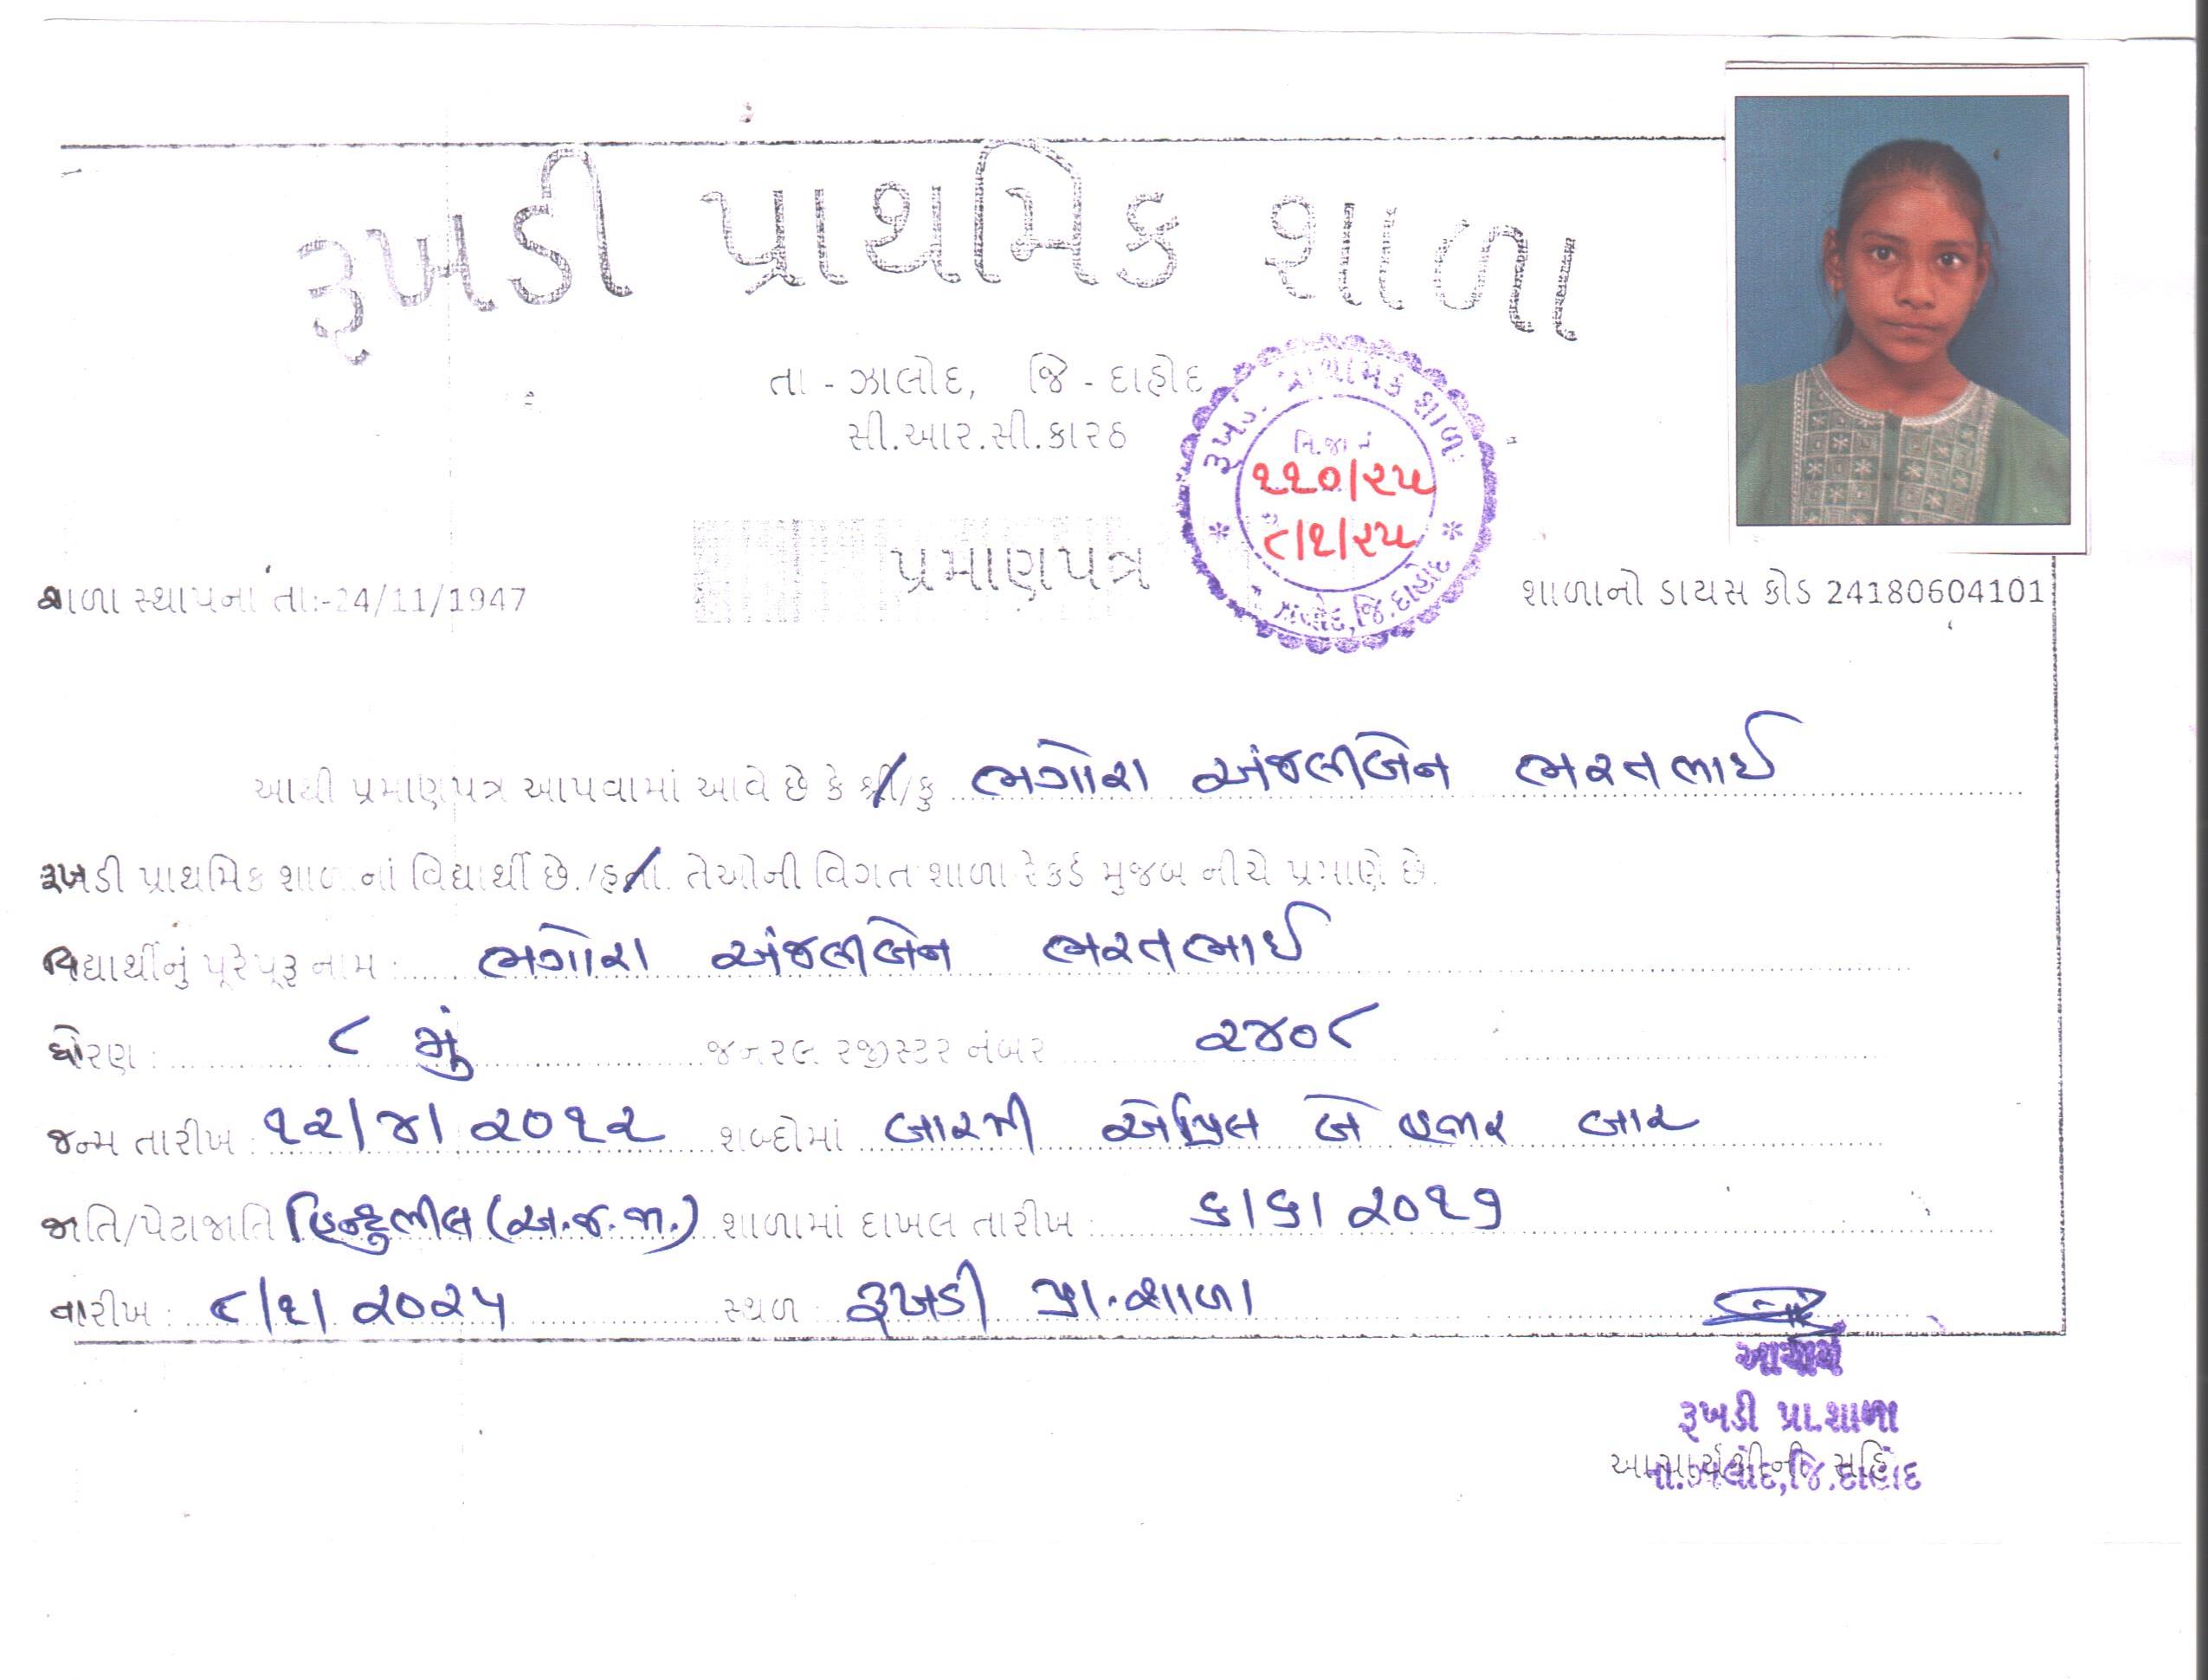 રૂખડી પ્રાથમિક શાળા
તા - ઝાલોદ, જિ - દાહોદ
સી.આર.સી.કારઠ
રૂખડી પ્રાથમિક શાળા
નિ.જા નં
૧૧૦/૨૫
૮/૧/૨૫
ઝાલોદ,જિ.દાહોદ
પ્રમાણપત્ર
શાળા સ્થાપના તા:-24/11/1947
શાળાનો ડાયસ કોડ 24180604101
આથી પ્રમાણપત્ર આપવામાં આવે છે કે શ્રી/કુ ભગોરા અંજલીબેન ભરતભાઈ
રૂખડી પ્રાથમિક શાળાનાં વિદ્યાર્થી છે./હતા. તેઓની વિગત શાળા રેકર્ડ મુજબ નીચે પ્રમાણે છે.
વિદ્યાર્થીનું પૂરેપૂરૂ નામ : ભગોરા અંજલીબેન ભરતભાઈ
ધોરણ : ૮ મું જનરલ રજીસ્ટર નંબર ૨૪૦૮
જન્મ તારીખ : ૧૨/૪/૨૦૧૨ શબ્દોમાં બારમી એપ્રિલ બે હજાર બાર
જાતિ/પેટાજાતિ હિન્દુભીલ (અ.જ.જા.) શાળામાં દાખલ તારીખ : ૬/૬/૨૦૧૭
તારીખ : ૮/૧/૨૦૨૫ સ્થળ : રૂખડી પ્રા.શાળા
આચાર્ય
રૂખડી પ્રા.શાળા
આચાર્યશ્રીની સહિ
તા.ઝાલોદ,જિ.દાહોદ